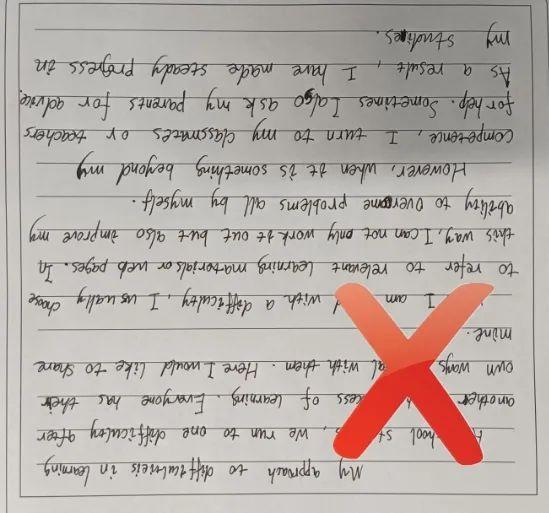 My approach to difficulteis in learning
we run to one difficulty after
another of learning. Everyone has their
own ways with them. Here I would like to share
mine.
I am with a difficulty, I usually chose
to refer to relevant learning materials or web pages. In
this way, I can not only work it out but also improve my
ability to overcome problems all by myself.
However, when it is something beyond my
competence, I turn to my classmates or teachers
for help. Sometimes I also ask my parents for advice.
As a result, I have made steady progress in
my studies.